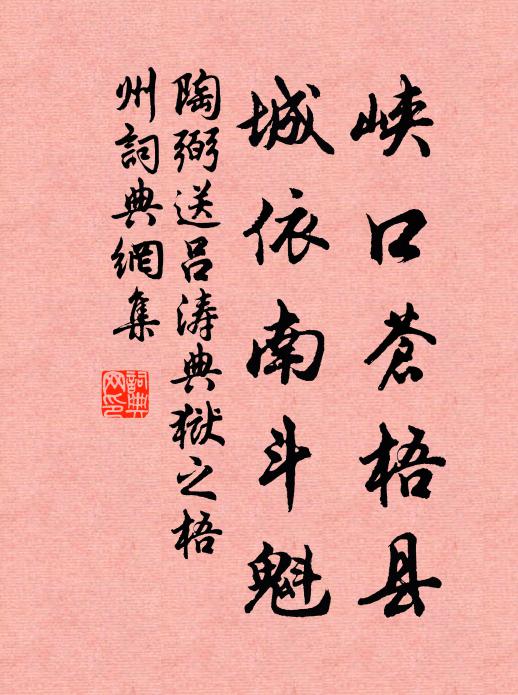 峡口苍梧县
城依南斗魁
陶弼送吕涛典狱之梧
州词典網集
詞典网印